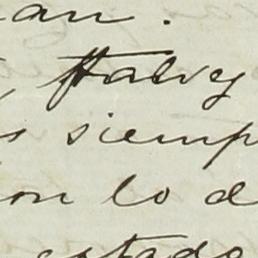 an.
talvez
s siemp
on lo d
estado